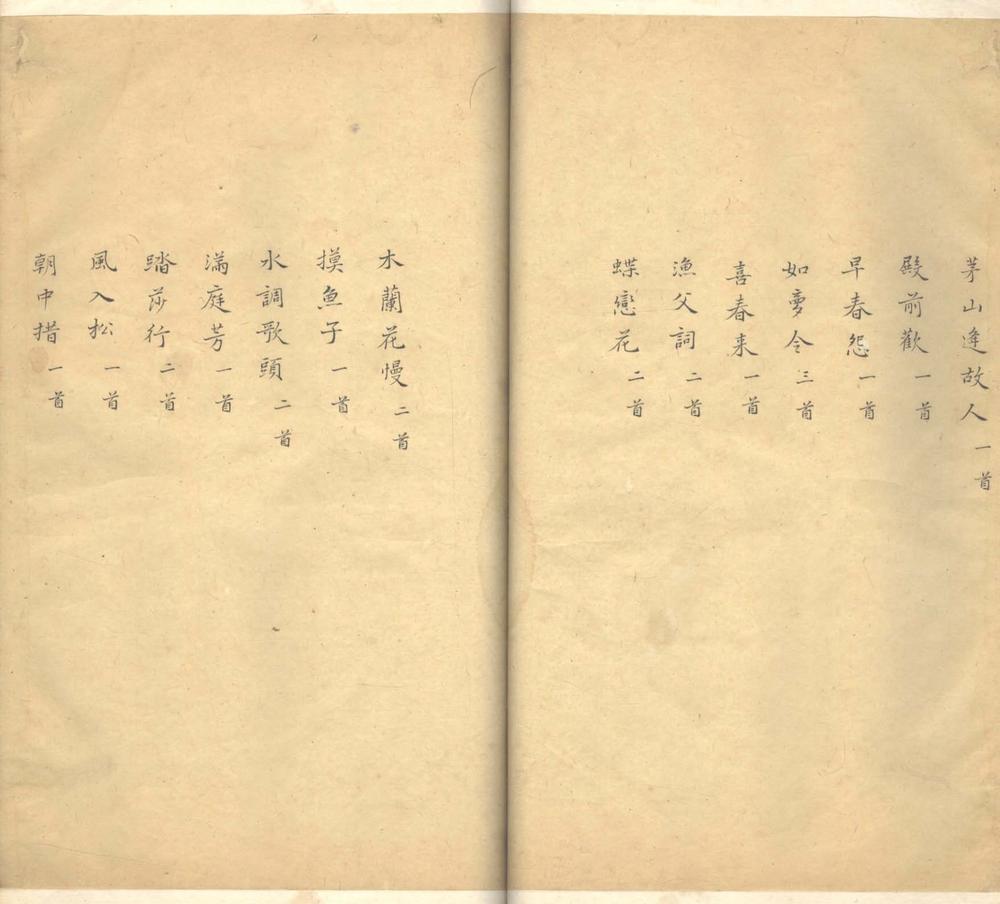 茅山逢故人一首
殿前歡一首
早春怨一首
如夢令三首
喜春来一首
漁父詞二首
蝶戀花二首
木蘭花慢二首
摸魚子一首
水調歌頭二首
滿庭芳一首
踏莎行二首
風入松一首
朝中措一首